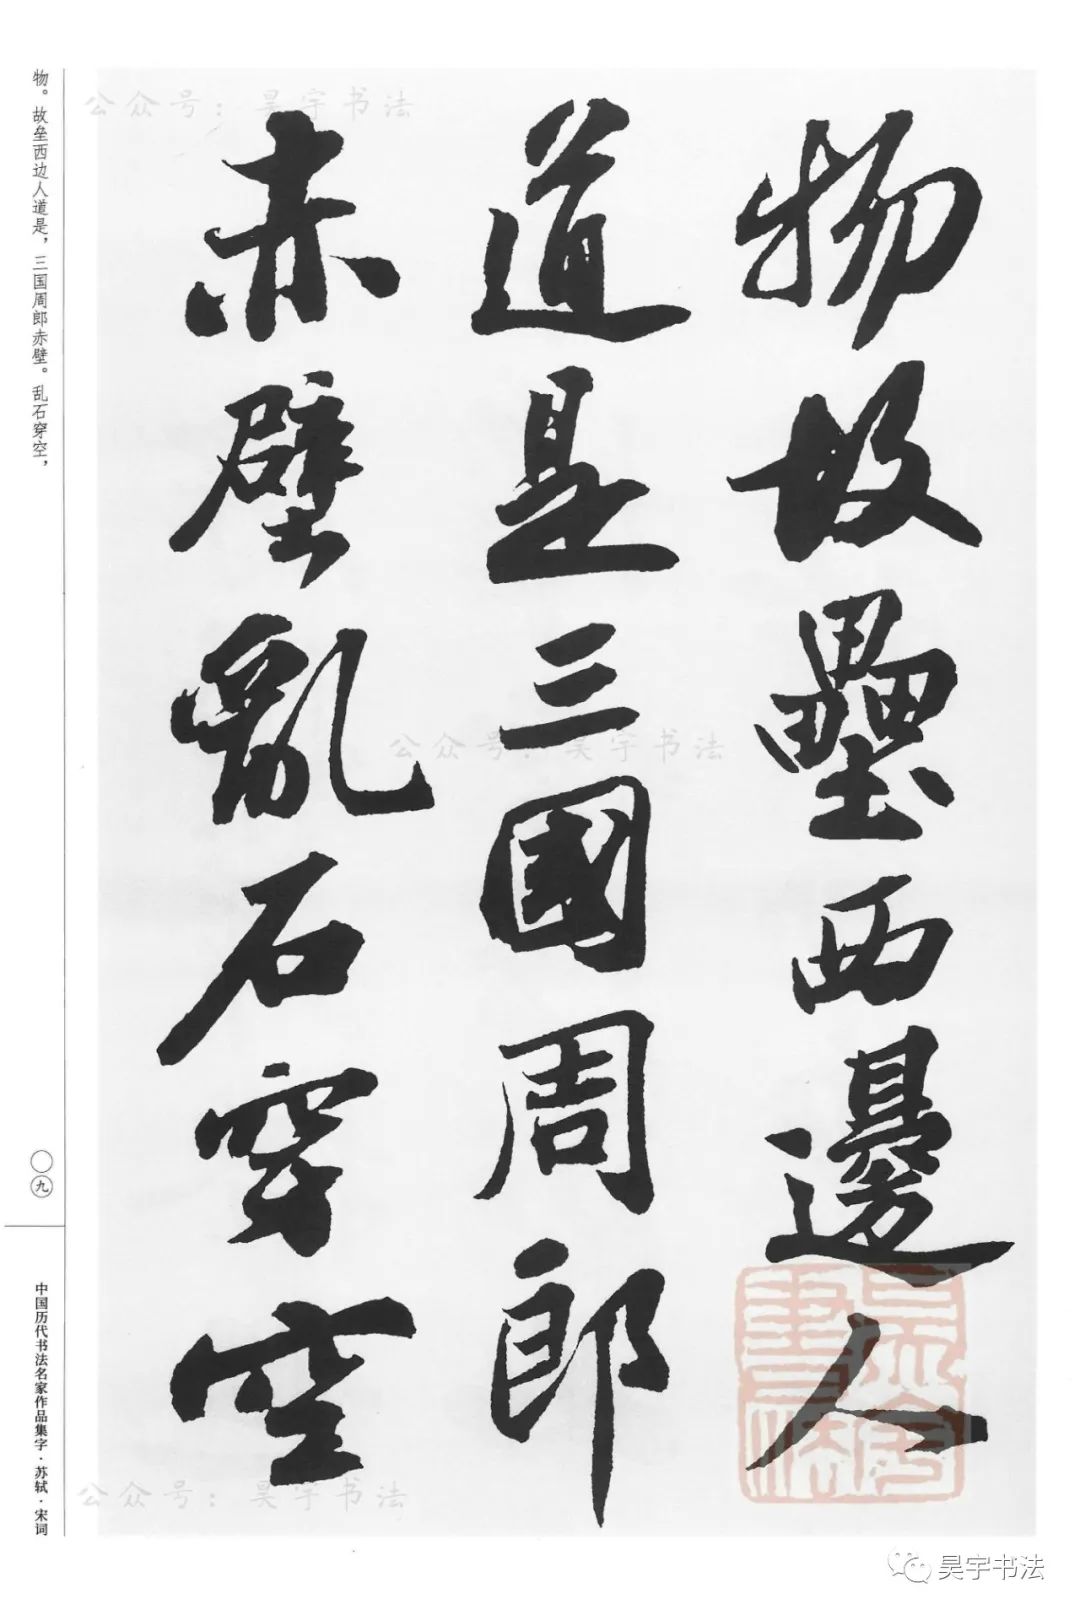 公众号：昊宇书法
物故壘西邊人
道是三國周郎
赤壁亂石穿空
公众号：昊宇书法
公众号：昊宇书法
昊宇書法
物。故垒西边人道是，三国周郎赤壁。乱石穿空，
〇九
中国历代书法名家作品集字·苏轼·宋词
昊宇书法